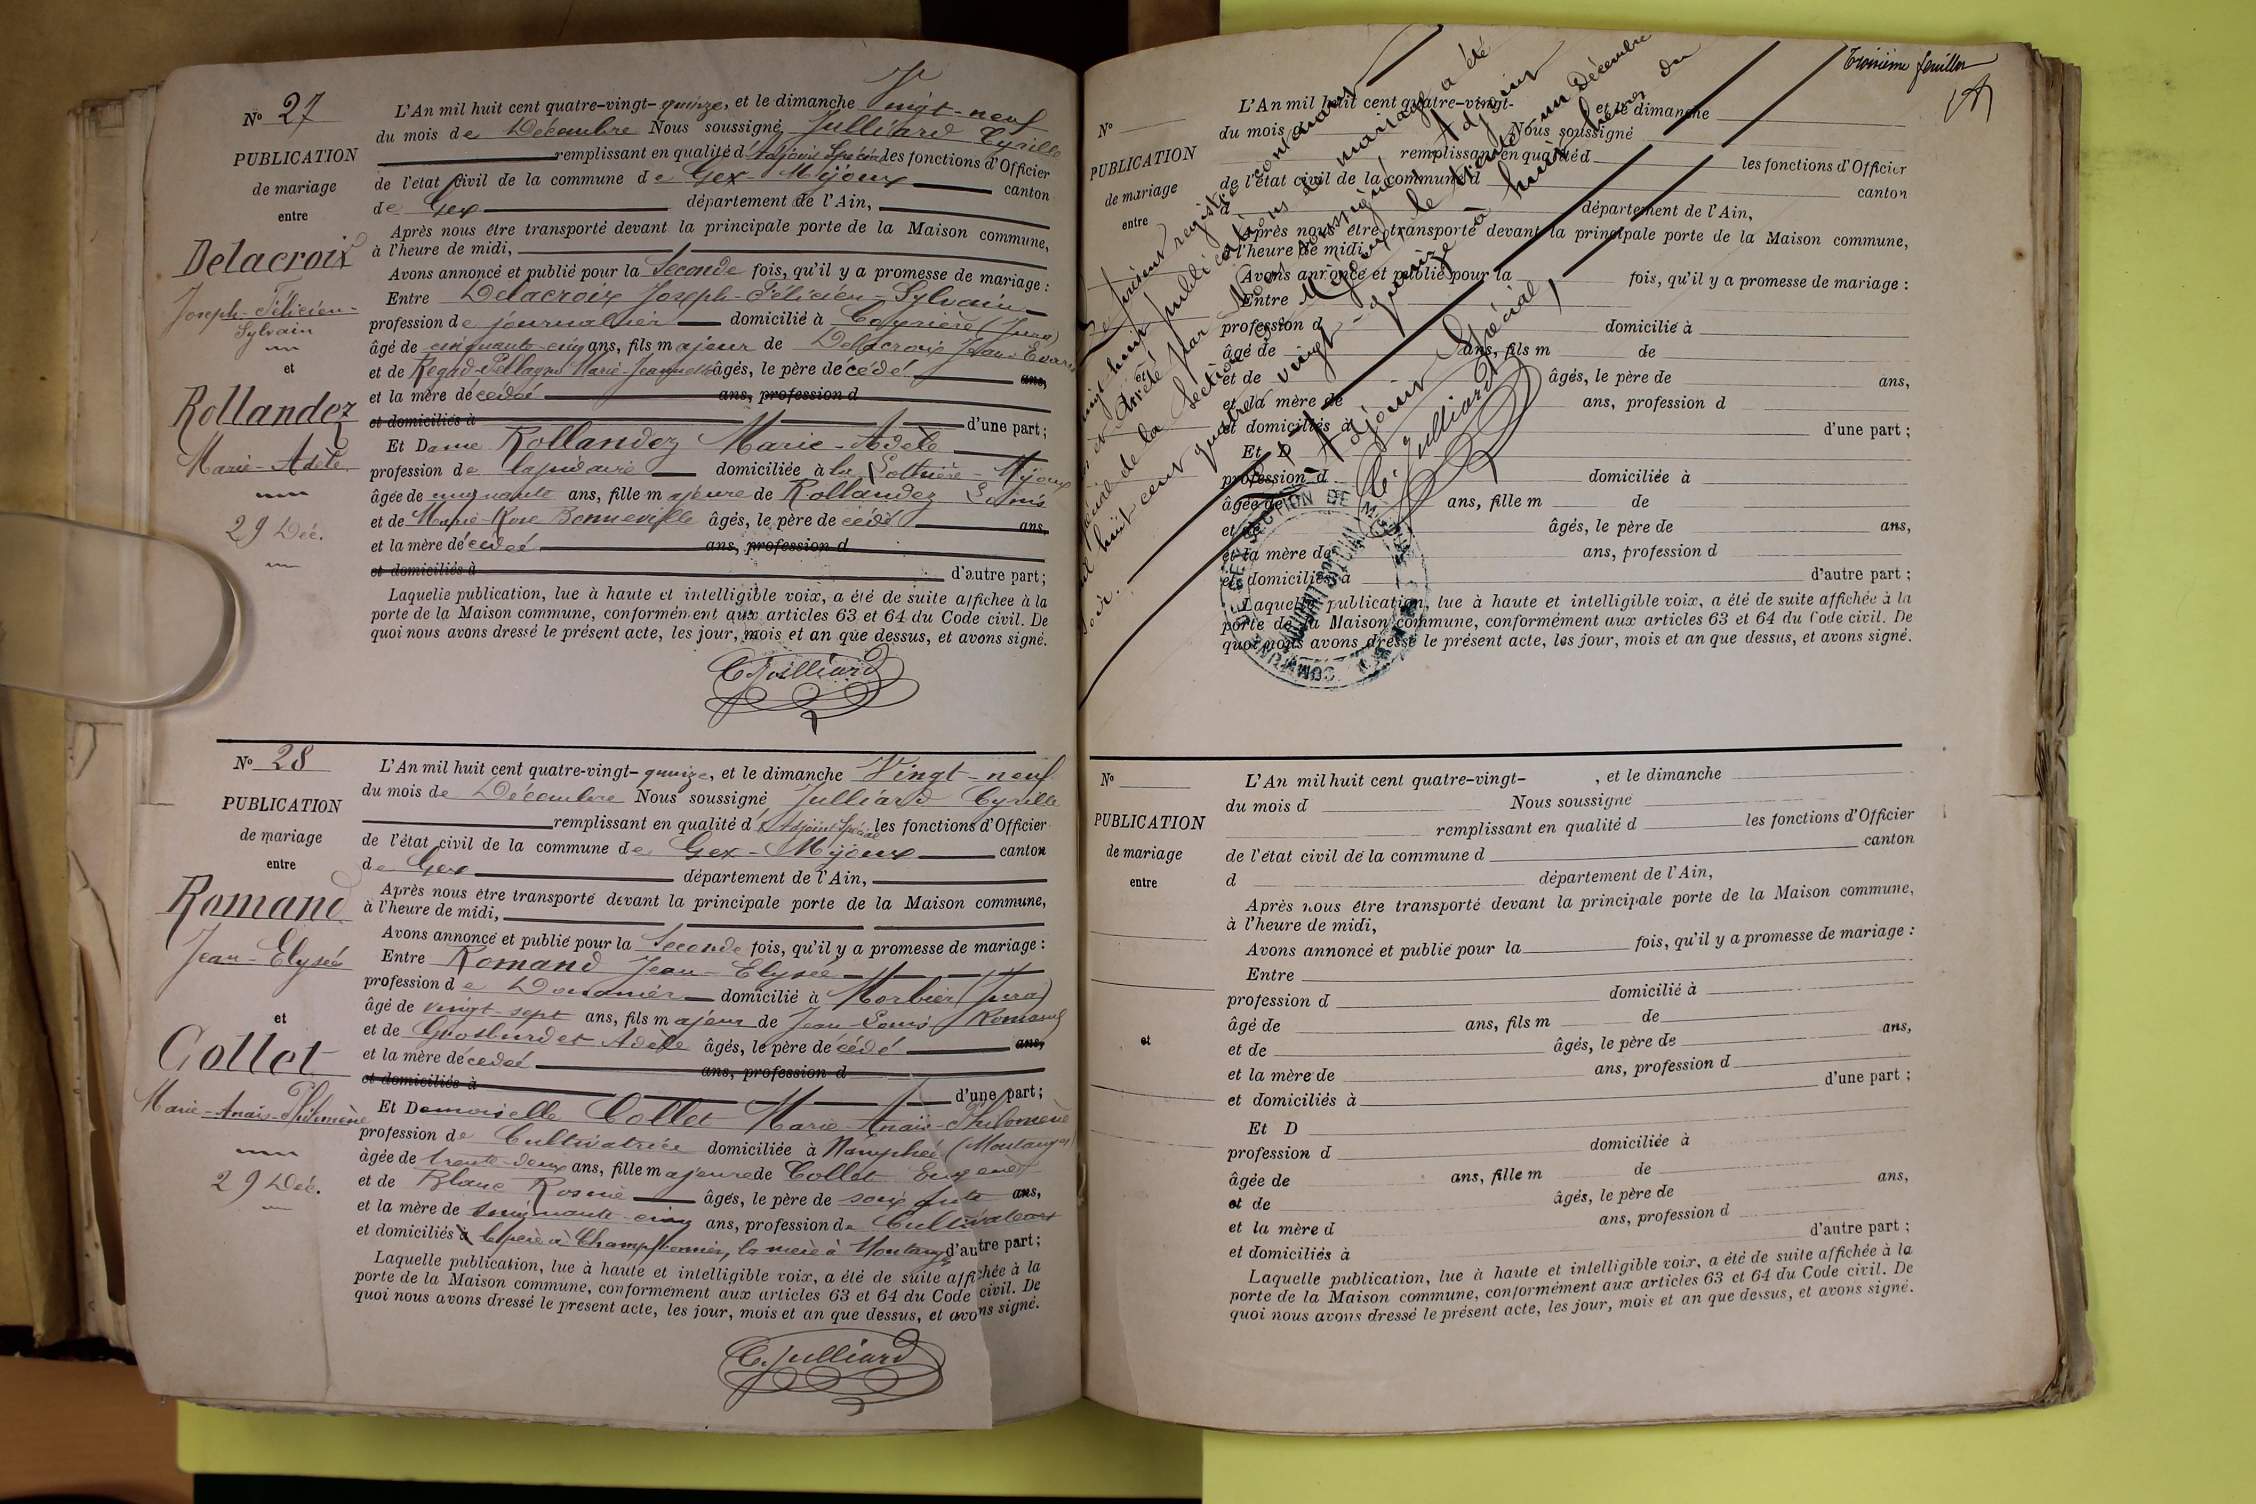 Nº 27
PUBLICATION
de mariage
entre
Delacroix
Joseph-Félicien-
Sylvain
et
Rollandez
Marie-Adèle
29 Déc.
L'An mil huit cent quatre-vingt-quinze, et le dimanche Vingt-neuf
du mois de Décembre Nous soussigné Julliard Cyrille
remplissant en qualité d'Adjoint Spécial les fonctions d'Officier
de l'état civil de la commune de Gex-Mijoux canton
de Gex département de l'Ain,
Après nous être transporté devant la principale porte de la Maison commune,
à l'heure de midi,
Avons annoncé et publié pour la Seconde fois, qu'il y a promesse de mariage :
Entre Delacroix Joseph-Félicien-Sylvain
profession de journalier domicilié à Coyrière (Jura)
âgé de cinquante-cinq ans, fils majeur de Delacroix Jean-
et de Regad-Pellagru Marie-Jeannette âgés, le père décédé ans,
et la mère décédée ans, profession d
et domiciliés à d'une part ;
Et Dame Rollandez Marie-Adèle
profession de lapidaire domiciliée à la Mijoux
âgée de cinquante ans, fille majeure de Rollandez Louis
et de Marie-Rose Benneville âgés, le père décédé ans,
et la mère décédée ans, profession d
et domiciliés à d'autre part ;
Laquelle publication, lue à haute et intelligible voix, a été de suite affichée à la
porte de la Maison commune, conformément aux articles 63 et 64 du Code civil. De
quoi nous avons dressé le présent acte, les jour, mois et an que dessus, et avons signé.
C. Julliard
Nº 28
PUBLICATION
de mariage
entre
Romand
Jean-Elysée
et
Collet
Marie-Anaïs-Philomène
29 Déc.
L'An mil huit cent quatre-vingt-quinze, et le dimanche Vingt-neuf
du mois de Décembre Nous soussigné Julliard Cyrille
remplissant en qualité d'Adjoint Spécial les fonctions d'Officier
de l'état civil de la commune de Gex-Mijoux canton
de Gex département de l'Ain,
Après nous être transporté devant la principale porte de la Maison commune,
à l'heure de midi,
Avons annoncé et publié pour la Seconde fois, qu'il y a promesse de mariage :
Entre Romand Jean-Elysée
profession de Douanier domicilié à Morbier (Jura)
âgé de vingt-sept ans, fils majeur de Jean-Louis Romand
et de Grosburdet Adèle âgés, le père décédé ans,
et la mère décédée ans, profession d
et domiciliés à d'une part ;
Et Demoiselle Collet Marie-Anaïs-Philomène
profession de Cultivatrice domiciliée à (Montanges)
âgée de trente-deux ans, fille majeure de Collet Eugène
et de Blanc Rosine âgés, le père de soixante ans,
et la mère de cinquante-cinq ans, profession de Cultivateurs
et domiciliés à le père à Champfromier, la mère à Montanges d'autre part ;
Laquelle publication, lue à haute et intelligible voix, a été de suite affichée à la
porte de la Maison commune, conformément aux articles 63 et 64 du Code civil. De
quoi nous avons dressé le présent acte, les jour, mois et an que dessus, et avons signé.
C. Julliard
Troisième feuillet
Le présent registre contenant
vingt huit publications de mariage a été
clos et arrêté par Nous soussigné Adjoint
Spécial de la Section de Mijoux, le trente un Décembre
mil huit cent quatre vingt-quinze à huit heures du
soir.
L'Adjoint Spécial,
C. Julliard
COMMUNE DE GEX SECTION DE MIJOUX
L'ADJOINT SPÉCIAL
Nº
PUBLICATION
de mariage
entre
et
L'An mil huit cent quatre-vingt- et le dimanche
du mois d Nous soussigné
remplissant en qualité d les fonctions d'Officier
de l'état civil de la commune d canton
d département de l'Ain,
Après nous être transporté devant la principale porte de la Maison commune,
à l'heure de midi,
Avons annoncé et publié pour la fois, qu'il y a promesse de mariage :
Entre
profession d domicilié à
âgé de ans, fils m de
et de âgés, le père de ans,
et la mère de ans, profession d
et domiciliés à d'une part ;
Et D
profession d domiciliée à
âgée de ans, fille m de
et de âgés, le père de ans,
et la mère de ans, profession d
et domiciliés à d'autre part ;
Laquelle publication, lue à haute et intelligible voix, a été de suite affichée à la
porte de la Maison commune, conformément aux articles 63 et 64 du Code civil. De
quoi nous avons dressé le présent acte, les jour, mois et an que dessus, et avons signé.
Nº
PUBLICATION
de mariage
entre
et
L'An mil huit cent quatre-vingt- , et le dimanche
du mois d Nous soussigné
remplissant en qualité d les fonctions d'Officier
de l'état civil de la commune d canton
d département de l'Ain,
Après nous être transporté devant la principale porte de la Maison commune,
à l'heure de midi,
Avons annoncé et publié pour la fois, qu'il y a promesse de mariage :
Entre
profession d domicilié à
âgé de ans, fils m de
et de âgés, le père de ans,
et la mère de ans, profession d
et domiciliés à d'une part ;
Et D
profession d domiciliée à
âgée de ans, fille m de
et de âgés, le père de ans,
et la mère d ans, profession d
et domiciliés à d'autre part ;
Laquelle publication, lue à haute et intelligible voix, a été de suite affichée à la
porte de la Maison commune, conformément aux articles 63 et 64 du Code civil. De
quoi nous avons dressé le présent acte, les jour, mois et an que dessus, et avons signé.